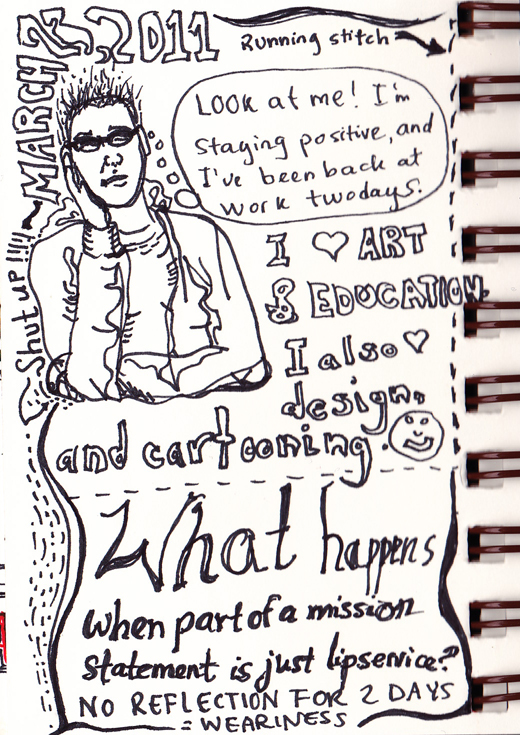 MARCH 2011
Running stitch
Look at me! I'm
Staying positive, and
I've been back at
work two days.
~ Shut up !!!!
I ♡ ART
& EDUCATION.
I also ♡
design.
and cartooning.
What happens
when part of a mission
statement is just lipservice?
NO REFLECTION FOR 2 DAYS
= WEARINESS